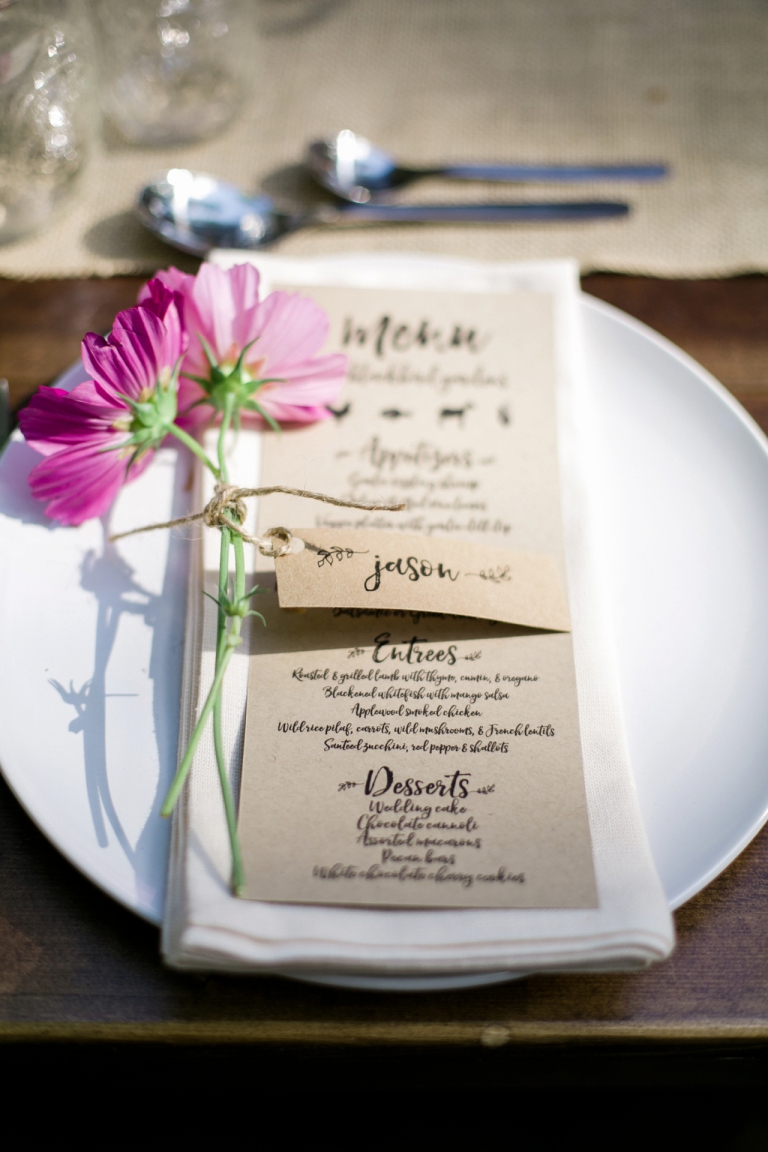 menu
Appetizers
jason
Entrees
Roasted & grilled lamb with thyme, cumin, & oregano
Blackened whitefish with mango salsa
Applewood smoked chicken
Wild rice pilaf, carrots, wild mushrooms, & French lentils
Sauteed zucchini, red pepper & shallots
Desserts
Wedding cake
Chocolate cannoli
Assorted macarons
Pecan bars
White chocolate cherry cookies